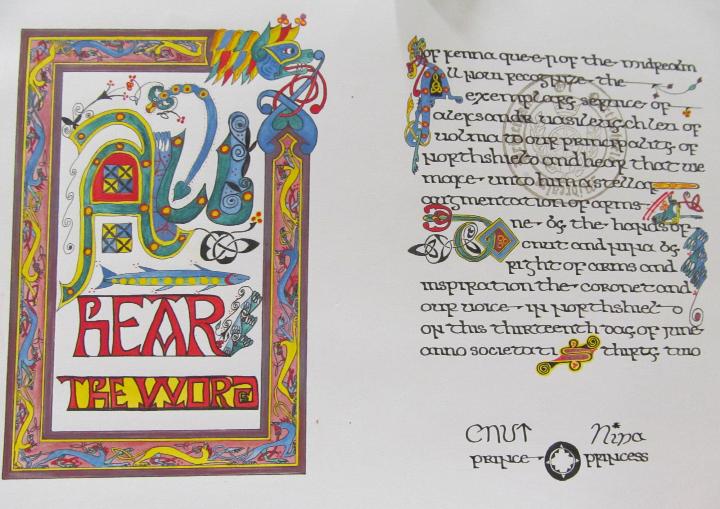 All
HEAR
THE WORD
of kenna queen of the midrealm
all now recognize the
exemplary service of
to our principality of
northshield and hear that we
make unto him a stellar
augmentation of arms
done by the hands of
cnut and nina by
right of arms and
inspiration the coronet and
our voice in northshield
on this thirteenth day of june
anno societatis thirty two
CNUT Nina
prince princess